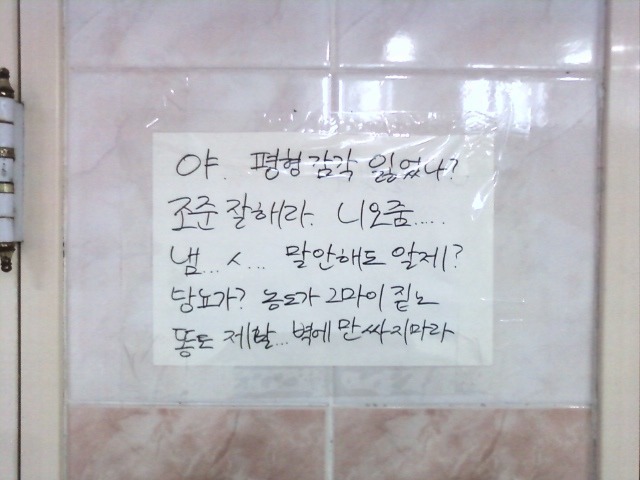 야. 평형감각 잃었나?
조준 잘해라. 니오줌.....
냄... ㅅ... 말안해도 알제?
당뇨가? 농도가 그마이 짙노
똥도 제발... 벽에만 싸지마라